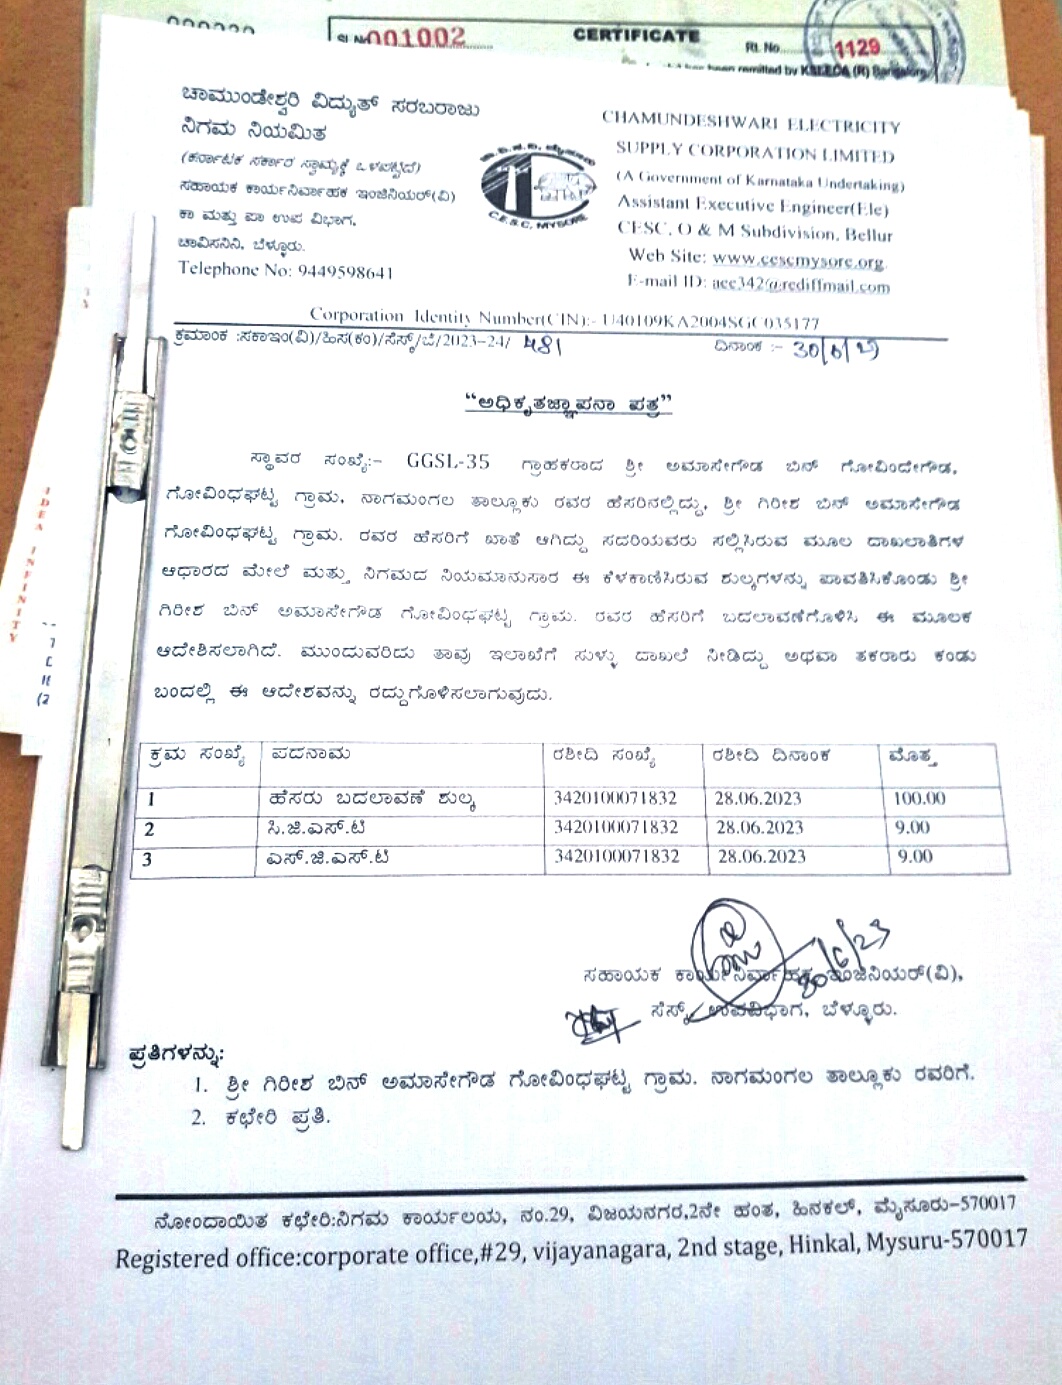 Sl No 001002
CERTIFICATE
Rt. No. 1129
been remitted by KSLECA (R) Bangalore
ಚಾಮುಂಡೇಶ್ವರಿ ವಿದ್ಯುತ್ ಸರಬರಾಜು
ನಿಗಮ ನಿಯಮಿತ
(ಕರ್ನಾಟಕ ಸರ್ಕಾರ ಸ್ವಾಮ್ಯಕ್ಕೆ ಒಳಪಟ್ಟಿದೆ)
ಸಹಾಯಕ ಕಾರ್ಯನಿರ್ವಾಹಕ ಇಂಜಿನಿಯರ್(ವಿ)
ಕಾ ಮತ್ತು ಪಾ ಉಪ ವಿಭಾಗ,
ಚಾವಿಸನಿನಿ, ಬೆಳ್ಳೂರು.
Telephone No: 9449598641
C.E.S.C, MYSORE
CHAMUNDESHWARI ELECTRICITY
SUPPLY CORPORATION LIMITED
(A Government of Karnataka Undertaking)
Assistant Executive Engineer(Ele)
CESC, O & M Subdivision, Bellur
Web Site: www.cescmysore.org
E-mail ID: aee342@rediffmail.com
Corporation Identity Number(CIN):- U40109KA2004SGC035177
ಕ್ರಮಾಂಕ :ಸಕಾಇಂ(ವಿ)/ಹಿಸ(ಕಂ)/ಸೆಸ್ಕ್/ಬೆ/2023-24/ 481 ದಿನಾಂಕ :- 30/6/23
“ಅಧಿಕೃತಜ್ಞಾಪನಾ ಪತ್ರ”
ಸ್ಥಾವರ ಸಂಖ್ಯೆ:- GGSL-35 ಗ್ರಾಹಕರಾದ ಶ್ರೀ ಅಮಾಸೇಗೌಡ ಬಿನ್ ಗೋವಿಂದೇಗೌಡ,
ಗೋವಿಂಧಘಟ್ಟ ಗ್ರಾಮ, ನಾಗಮಂಗಲ ತಾಲ್ಲೂಕು ರವರ ಹೆಸರಿನಲ್ಲಿದ್ದು, ಶ್ರೀ ಗಿರೀಶ ಬಿನ್ ಅಮಾಸೇಗೌಡ
ಗೋವಿಂಧಘಟ್ಟ ಗ್ರಾಮ. ರವರ ಹೆಸರಿಗೆ ಖಾತೆ ಆಗಿದ್ದು ಸದರಿಯವರು ಸಲ್ಲಿಸಿರುವ ಮೂಲ ದಾಖಲಾತಿಗಳ
ಆಧಾರದ ಮೇಲೆ ಮತ್ತು ನಿಗಮದ ನಿಯಮಾನುಸಾರ ಈ ಕೆಳಕಾಣಿಸಿರುವ ಶುಲ್ಕಗಳನ್ನು ಪಾವತಿಸಿಕೊಂಡು ಶ್ರೀ
ಗಿರೀಶ ಬಿನ್ ಅಮಾಸೇಗೌಡ ಗೋವಿಂಧಘಟ್ಟ ಗ್ರಾಮ. ರವರ ಹೆಸರಿಗೆ ಬದಲಾವಣೆಗೊಳಿಸಿ ಈ ಮೂಲಕ
ಆದೇಶಿಸಲಾಗಿದೆ. ಮುಂದುವರಿದು ತಾವು ಇಲಾಖೆಗೆ ಸುಳ್ಳು ದಾಖಲೆ ನೀಡಿದ್ದು ಅಥವಾ ತಕರಾರು ಕಂಡು
ಬಂದಲ್ಲಿ ಈ ಆದೇಶವನ್ನು ರದ್ದುಗೊಳಿಸಲಾಗುವುದು.
ಕ್ರಮ ಸಂಖ್ಯೆ ಪದನಾಮ ರಶೀದಿ ಸಂಖ್ಯೆ ರಶೀದಿ ದಿನಾಂಕ ಮೊತ್ತ
1 ಹೆಸರು ಬದಲಾವಣೆ ಶುಲ್ಕ 3420100071832 28.06.2023 100.00
2 ಸಿ.ಜಿ.ಎಸ್.ಟಿ 3420100071832 28.06.2023 9.00
3 ಎಸ್.ಜಿ.ಎಸ್.ಟಿ 3420100071832 28.06.2023 9.00
30/6/23
ಸಹಾಯಕ ಕಾರ್ಯನಿರ್ವಾಹಕ ಇಂಜಿನಿಯರ್(ವಿ),
ಸೆಸ್ಕ್ ಉಪವಿಭಾಗ, ಬೆಳ್ಳೂರು.
ಪ್ರತಿಗಳನ್ನು:
1. ಶ್ರೀ ಗಿರೀಶ ಬಿನ್ ಅಮಾಸೇಗೌಡ ಗೋವಿಂಧಘಟ್ಟ ಗ್ರಾಮ. ನಾಗಮಂಗಲ ತಾಲ್ಲೂಕು ರವರಿಗೆ.
2. ಕಛೇರಿ ಪ್ರತಿ.
ನೋಂದಾಯಿತ ಕಛೇರಿ:ನಿಗಮ ಕಾರ್ಯಲಯ, ನಂ.29, ವಿಜಯನಗರ,2ನೇ ಹಂತ, ಹಿನಕಲ್, ಮೈಸೂರು-570017
Registered office:corporate office,#29, vijayanagara, 2nd stage, Hinkal, Mysuru-570017
IDEA INFINITY